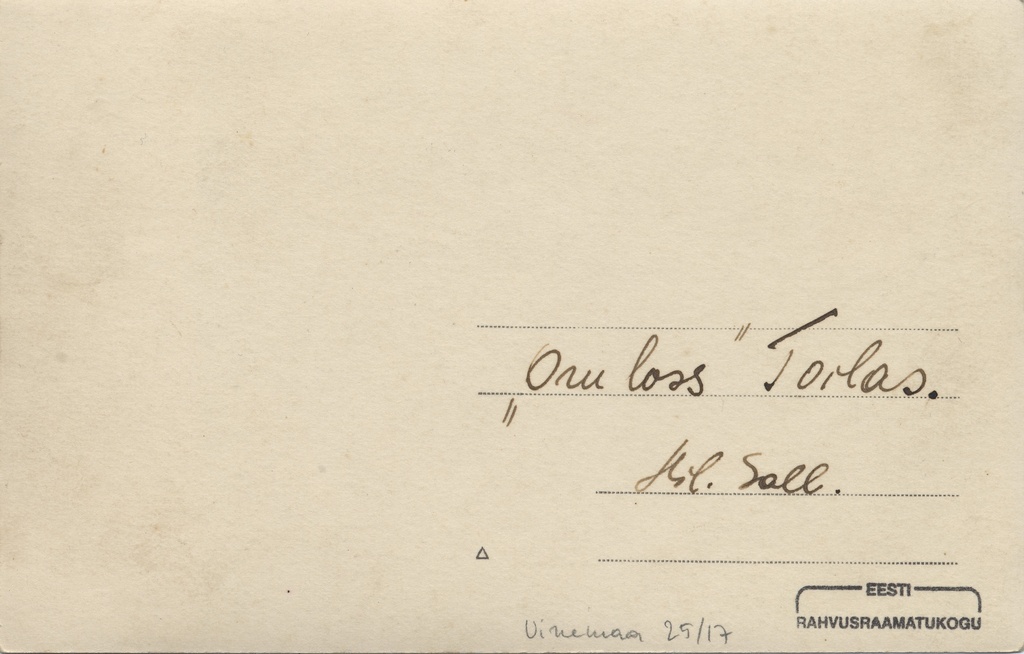 „Oru loss" Toilas.
Hil. Sall.
EESTI
RAHVUSRAAMATUKOGU
Virumaa 25/17